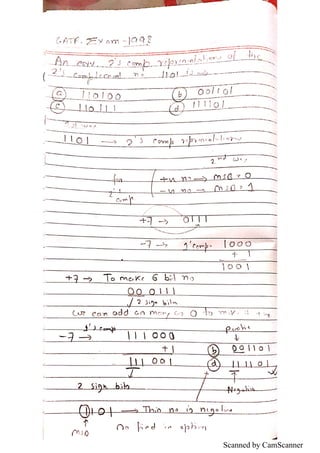 GATE. Exam-1998
An equ. 2's comp representation of the
2's complement no 1101 is
(a) 110100 (b) 001101
(c) 110111 (d) 111101
1101 → 2's comp representation
2nd way
for 2's comp
+ve no → MSB = 0
-ve no → MSB = 1
+7 → 0111
-7 → 1's comp. 1000
+ 1
1001
+7 → To make 6 bit no
00 0111
2 sign bits
we can add as many as 0 to make
-7 → 1's comp 111000
+1
111 001
2 sign bits
Positive
(b) 001101
(d) 111101
Negative
1101 → This no is negative
MSB
So find in option
Scanned by CamScanner